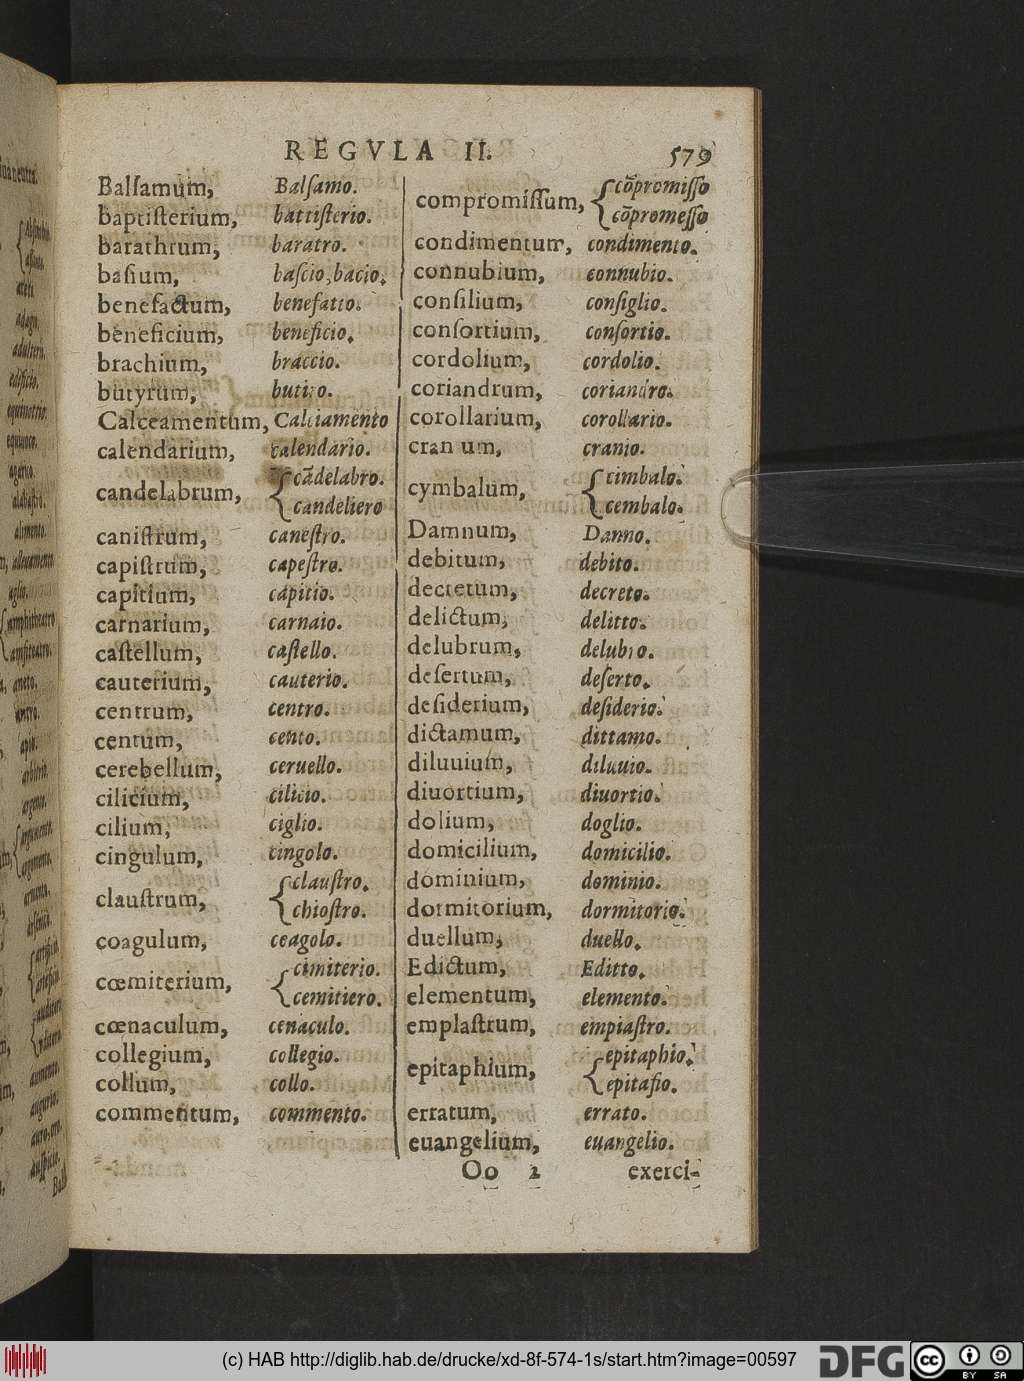 REGVLA II. 579
Balſamum, Balſamo.
baptiſterium, battiſterio.
barathrum, baratro.
baſium, baſcio, bacio.
benefactum, benefatto.
beneficium, beneficio.
brachium, braccio.
butyrum, butiro.
Calceamentum, Calciamento
calendarium, calendario.
candelabrum, cãdelabro.
candeliero
caniſtrum, caneſtro.
capiſtrum, capeſtro.
capitium, capitio.
carnarium, carnaio.
caſtellum, caſtello.
cauterium, cauterio.
centrum, centro.
centum, cento.
cerebellum, ceruello.
cilicium, cilicio.
cilium, ciglio.
cingulum, cingolo.
clauſtrum, clauſtro.
chioſtro.
coagulum, coagolo.
cœmiterium, cimiterio.
cemitiero.
cœnaculum, cenaculo.
collegium, collegio.
collum, collo.
commentum, commento.
compromiſſum, cõpromiſſo
cõpromeſſo
condimentum, condimento.
connubium, connubio.
conſilium, conſiglio.
conſortium, conſortio.
cordolium, cordolio.
coriandrum, coriandro.
corollarium, corollario.
cranium, cranio.
cymbalum, cimbalo.
cembalo.
Damnum, Danno.
debitum, debito.
decretum, decreto.
delictum, delitto.
delubrum, delubro.
deſertum, deſerto.
deſiderium, deſiderio.
dictamum, dittamo.
diluuium, diluuio.
diuortium, diuortio.
dolium, doglio.
domicilium, domicilio.
dominium, dominio.
dormitorium, dormitorio.
duellum, duello.
Edictum, Editto.
elementum, elemento.
emplaſtrum, empiaſtro.
epitaphium, epitaphio.
epitafio.
erratum, errato.
euangelium, euangelio.
Oo 2 exerci-
(c) HAB http://diglib.hab.de/drucke/xd-8f-574-1s/start.htm?image=00597
DFG
cc BY SA